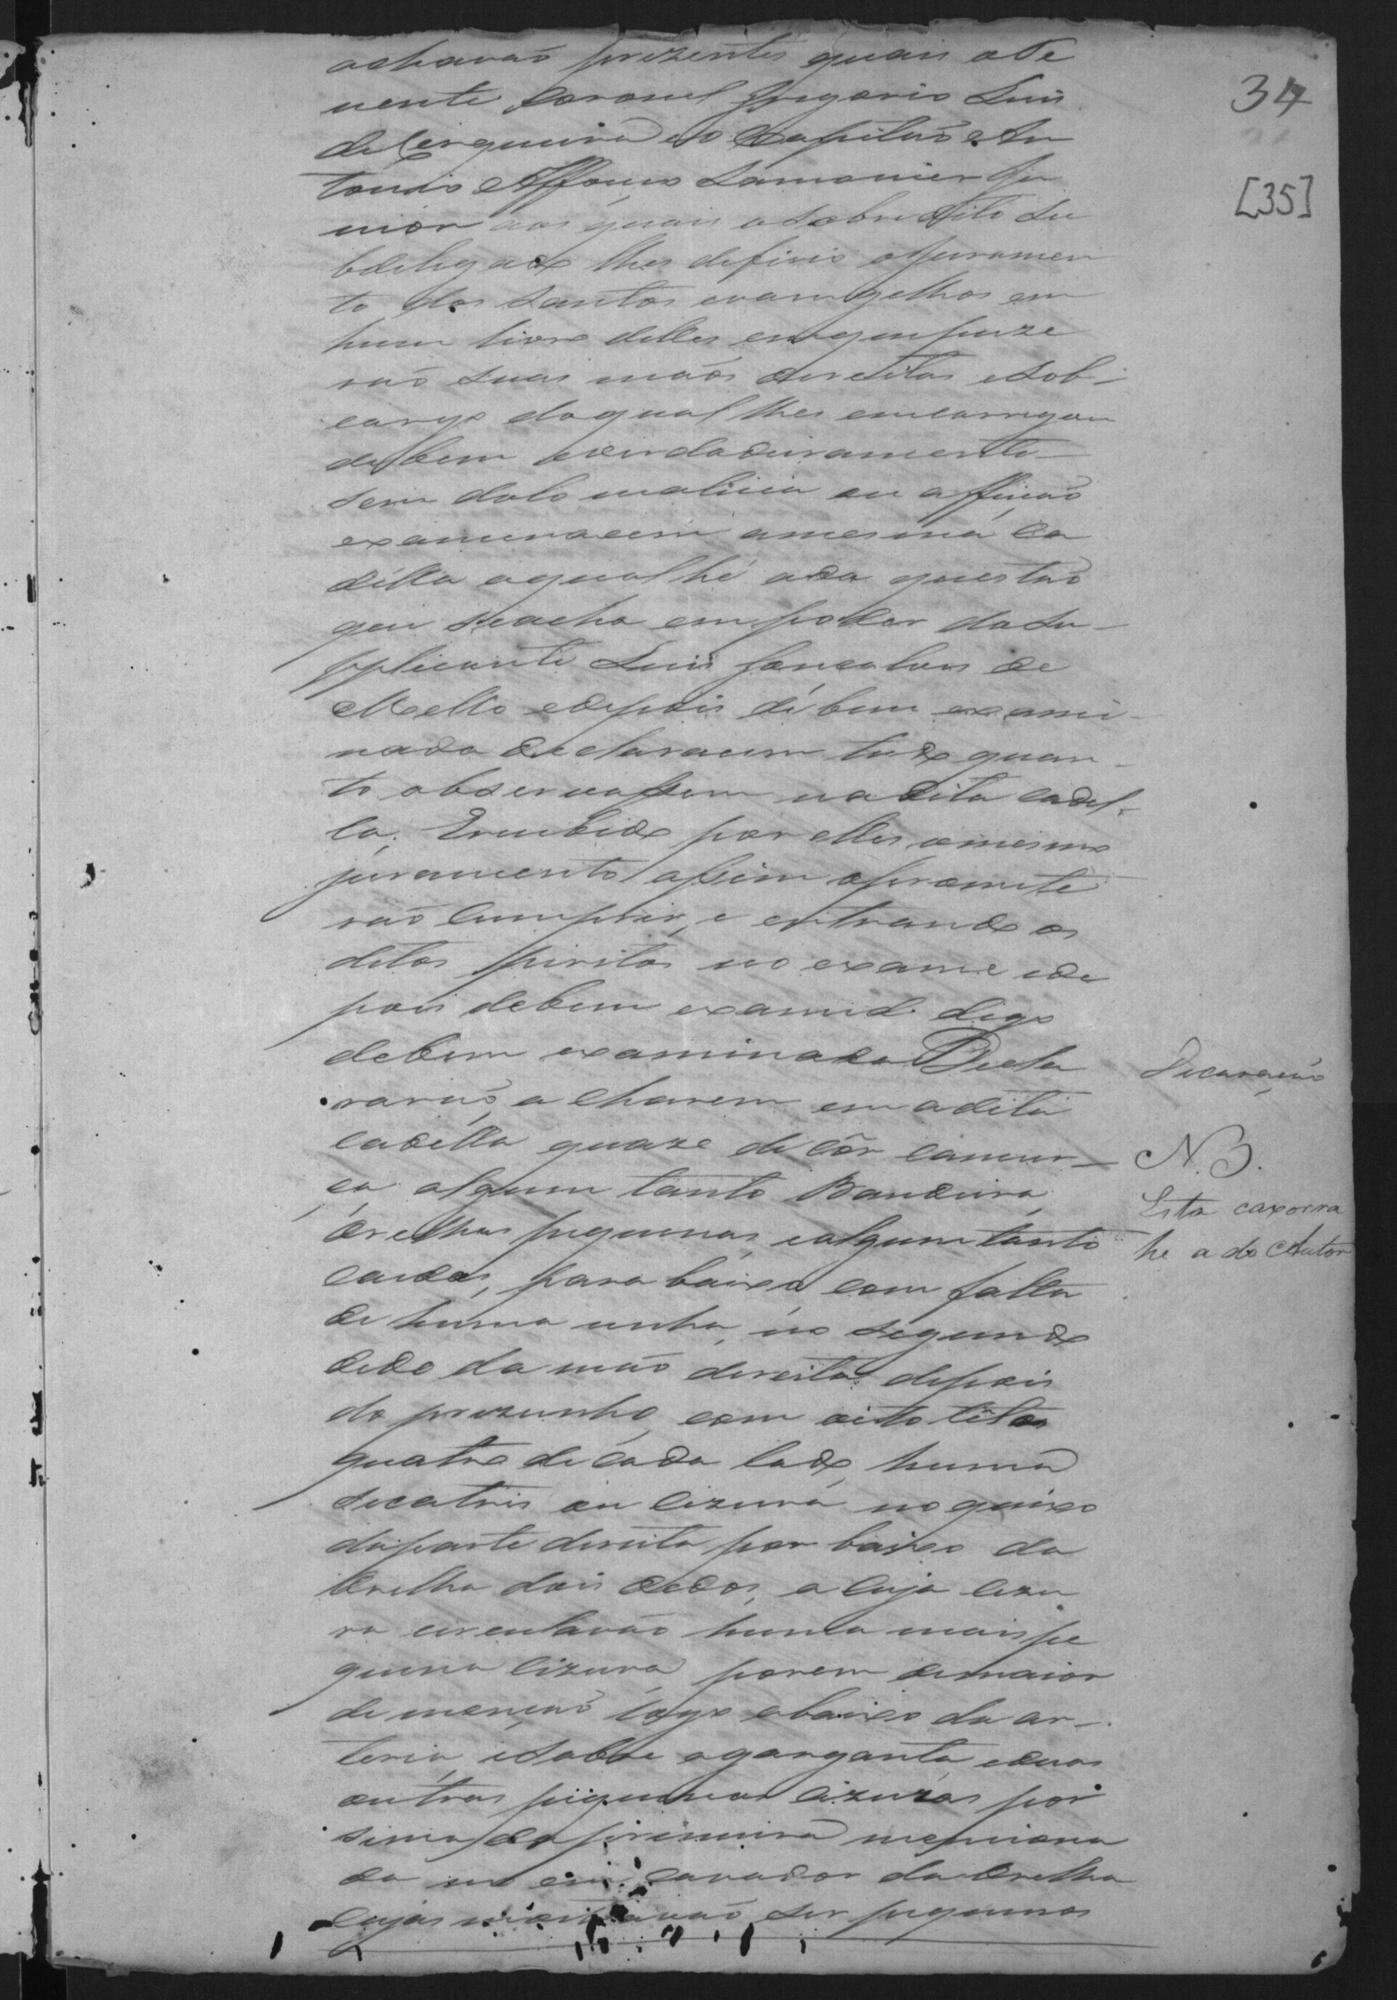 achavaõ prezentes quais o Te
nente Coronel Gregorio Luis
de Cerqueira e o Capitaõ An
tonio Affonço Lamonier Ju
nior aos quais o sobredito Su
bdelegado lhes deferio o juramen
to dos Santos evamgelhos em
hum livro delles em que puze
raõ suas maõs direitas e sob
cargo do qual lhes emcarregou
de bem e verdadeiramente
sem dolo malicia ou affeiçaõ
examinacem a mesma ca
della a qual hé a da questaõ
que se acha em poder do Su
pplicante Luis Gonçalves de
Mello e depois de bem exami
nada declaracem tudo quan
to observassem na dita cadel
la. E recebido por elles o mesmo
juramento assim o promete
raõ cumprir, e entrando os
ditos piritos no exame e de
pois de bem examid. digo
de bem examinada Decla
raraõ acharem em a dita
cadella quaze de côr camur
ça algum tanto Bandeira,
orelhas piquenas, e algum tanto
caidas, para baixo com falta
de huma unha, no segundo
dedo da maõ direita depois
do prezunho, com oito têtas
quatro de cada lado, huma
sicatris ou cizura no queixo
da parte direita por baixo da
orelha dois dedos, a cuja cizu
ra circulavaõ huma mais pe
quena cizura, porem de maior
demençaõ logo abaixo da ar
teria, e sobre a garganta e duas
outras piquenas cizuras por
sima da primeira menciona
da no em. cavador da orelha
cujas mostravaõ ser piquenas
34
[35]
Decaração
N.B.
Esta caxorra
he a do Autor